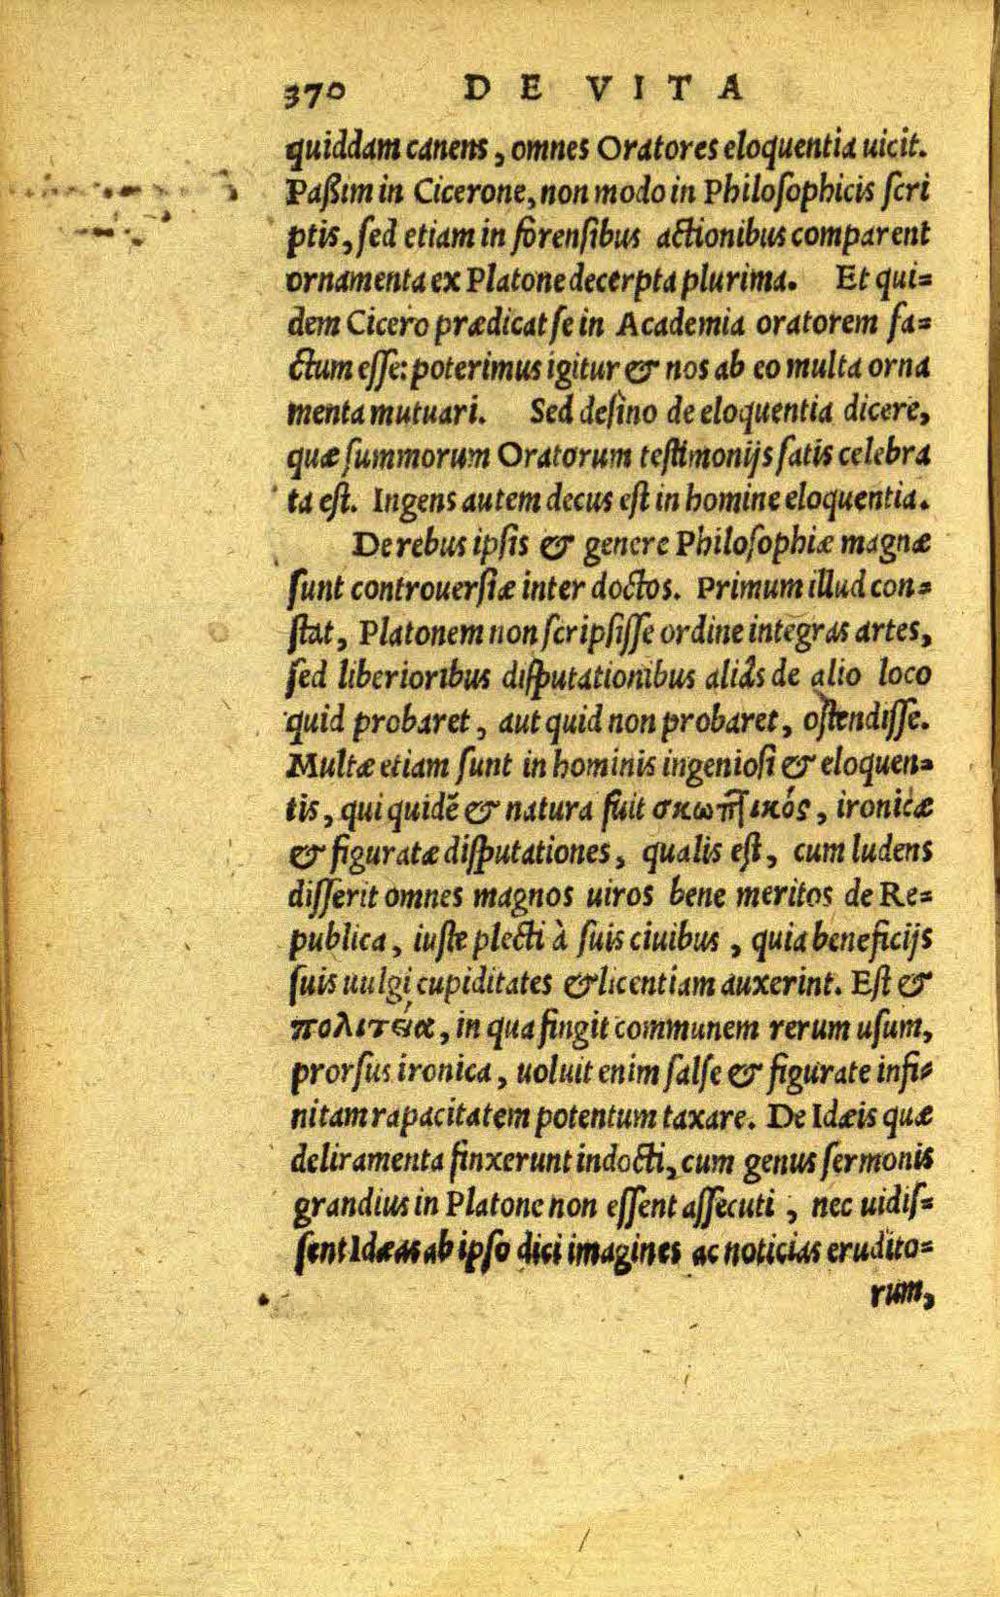 370 DE VITA
quiddam canens, omnes Oratores eloquentia uicit.
Paßim in Cicerone, non modo in Philoſophicis ſcri
ptis, ſed etiam in forenſibus actionibus comparent
ornamenta ex Platone decerpta plurima. Et qui=
dem Cicero prædicat ſe in Academia oratorem fa=
ctum eſſe: poterimus igitur & nos ab eo multa orna
menta mutuari. Sed deſino de eloquentia dicere,
quæ ſummorum Oratorum teſtimonijs ſatis celebra
ta eſt. Ingens autem decus eſt in homine eloquentia.
De rebus ipſis & genere Philoſophiæ magnæ
ſunt controuerſiæ inter doctos. Primum illud con=
ſtat, Platonem non ſcripſiſſe ordine integras artes,
ſed liberioribus diſputationibus aliàs de alio loco
quid probaret, aut quid non probaret, oſtendiſſe.
Multæ etiam ſunt in hominis ingenioſi & eloquen=
tis, qui quidē & natura fuit σκωπτικός, ironicæ
& figuratæ diſputationes, qualis eſt, cum ludens
diſſerit omnes magnos uiros bene meritos de Re=
publica, iuſte plecti à ſuis ciuibus, quia beneficijs
ſuis uulgi cupiditates & licentiam auxerint. Eſt &
πολιτεία, in qua fingit communem rerum uſum,
prorſus ironica, uoluit enim ſalſe & figurate infi=
nitam rapacitatem potentum taxare. De Idæis quæ
deliramenta finxerunt indocti, cum genus ſermonis
grandius in Platone non eſſent aſſecuti, nec uidiſ=
ſent Idæas ab ipſo dici imagines ac noticias erudito=
rum,